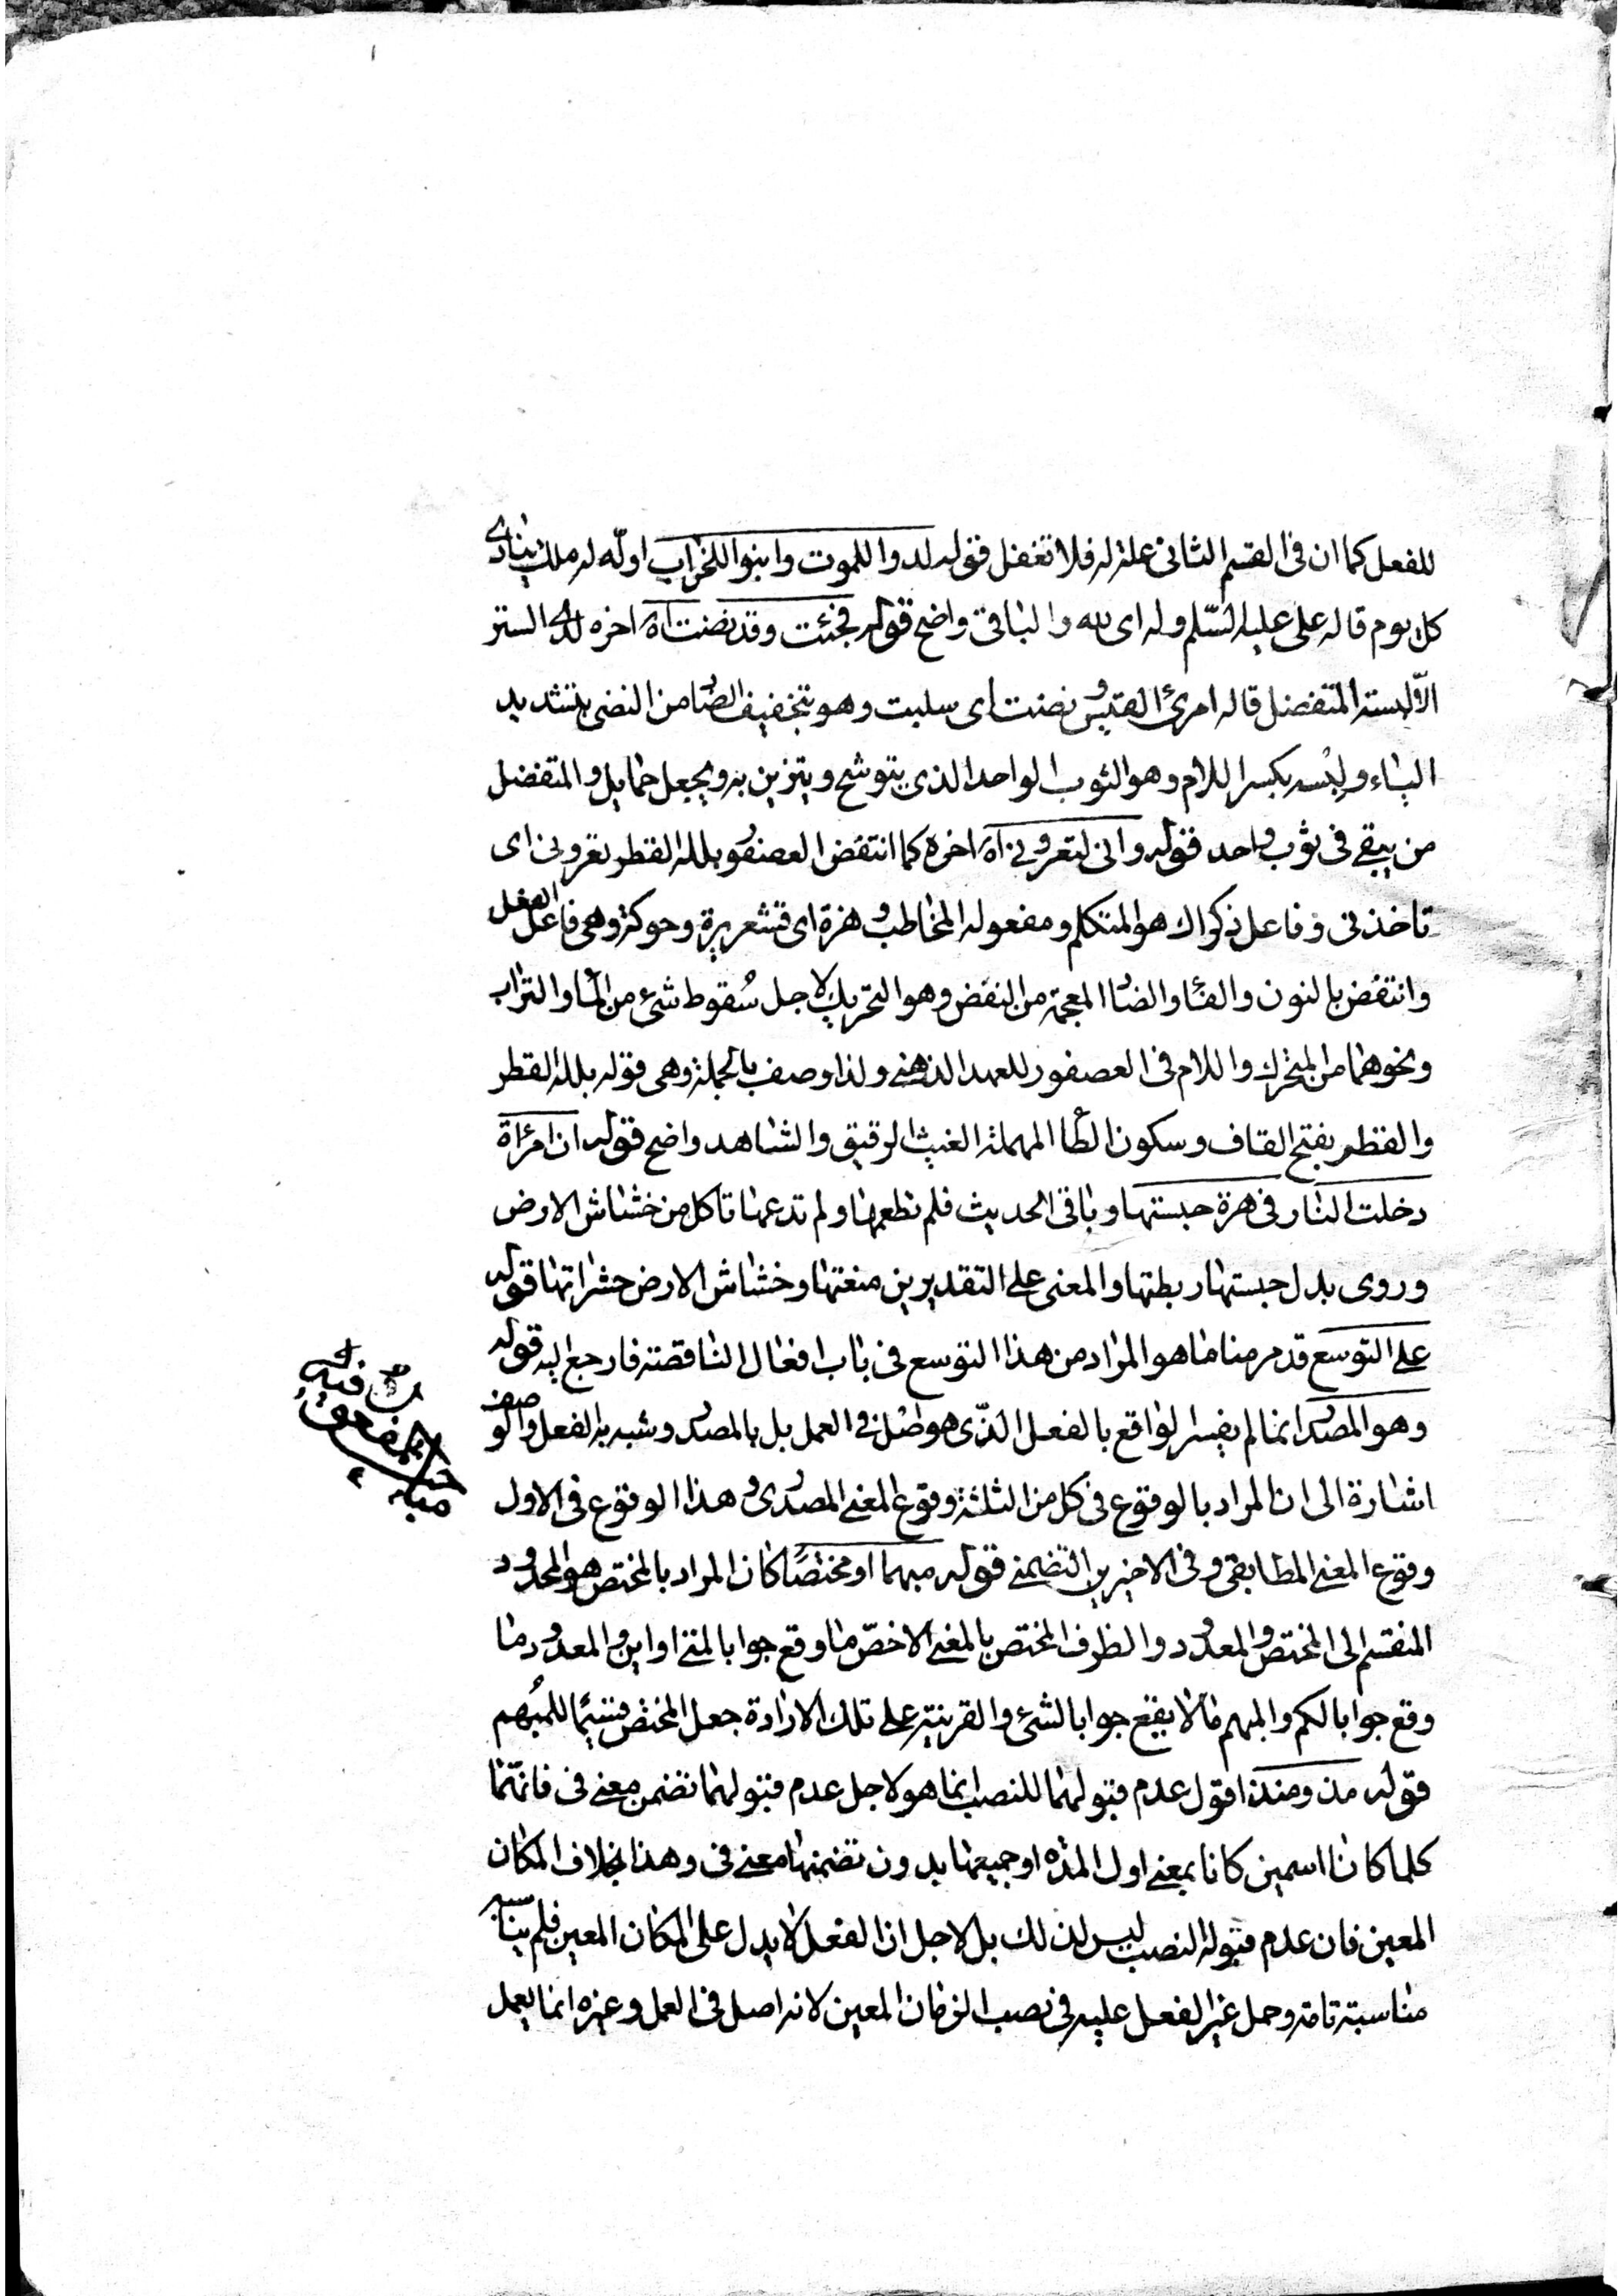 للفعل كما ان فى القسم الثانى علة له فلا تغفل قوله لدوا للموت وابنوا للخراب اوله له ملك ينادى
كل يوم قاله على عليه السّلم وله اى لله والباقى واضح قوله فجئت وقد نضت اه اخره لدى الستر
الّا لبسة المتفضل قاله امرئ القيس ونضت اى سلبت وهو بتخفيف الضاد من النضى بتشديد
الياء ولبسه بكسر اللام وهو الثوب الواحد الذى يتوشح ويتزين به ويجعل حمايل والمتفضل
من يبقى فى ثوب واحد قوله وانى لتعرونى اه اخره كما انتفض العصفور بلله القطر تعرونى اى
تاخذنى وفاعل ذكراك هو المتكلم ومفعوله المخاطب وهزة اى قشعريرة وحركة وهى فاعل الفعل
وانتفض بالنون والفاء والضاد المعجمة من النفض وهو التحريك لاجل سُقوط شىء من الماء والتراب
ونحوهما من المتحرك واللام فى العصفور للعهد الذهنى ولذا وصف بالجملة وهى قوله بلله القطر
والقطر بفتح القاف وسكون الطاء المهملة الغيث الرقيق والشاهد واضح قوله ان امرأة
دخلت النار فى هرة حبستها وباقى الحديث فلم تطعمها ولم تدعها تاكل من خشاش الارض
وروى بدل حبستها ربطتها والمعنى على التقديرين منعتها وخشاش الارض حشراتها قوله
على التوسع قد مر منا ما هو المراد من هذا التوسع فى باب افعال الناقصة فارجع اليه قوله
وهو المصدر انما لم يفسر الواقع بالفعل الّذى هو اصل فى العمل بل بالمصدر وشبه به الفعل والوصف
اشارة الى ان المراد بالوقوع فى كل من الثلثة وقوع المعنى المصدرى وهذا الوقوع فى الاول
وقوع المعنى المطابقى وفى الاخيرين التضمنى قوله مبهما او مختصًا كان المراد بالمختص هو المحدود
المنقسم الى المختص والمعدود والظرف المختص بالمعنى الاخصّ ما وقع جوابا لمتى او اين والمعدود ما
وقع جوابا لكم والمبهم ما لا يقع جوابا لشىء والقرينة على تلك الارادة جعل المختص قسيمًا للمبُهم
قوله مذ ومنذ اقول عدم قبولهما للنصب انما هو لاجل عدم قبولهما تضمن معنى فى فانّهما
كلما كانا اسمين كانا بمعنى اول المدة او جميعها بدون تضمنها معنى فى وهذا بخلاف المكان
المعين فان عدم قبوله النصب ليس لذلك بل لاجل ان الفعل لا يدل على المكان المعين فلم يناسبه
مناسبة تامة وحمل غير الفعل عليه فى نصب الزمان المعين لانه اصل فى العمل وغيره انما يعمل